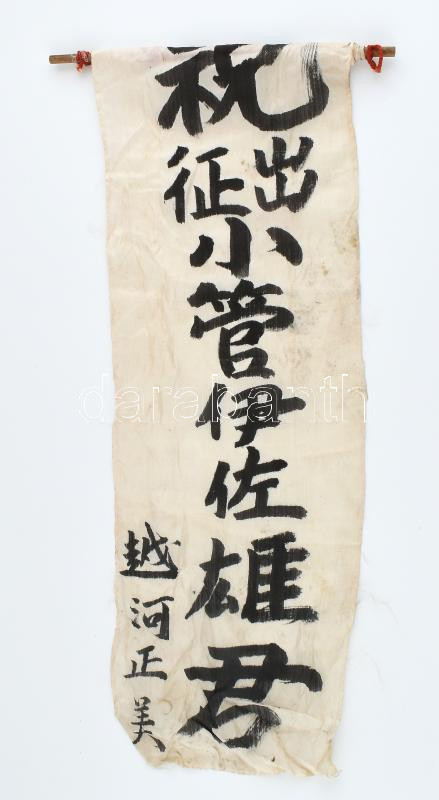 祝出征小管伊佐雄君
越河正美
darabanth